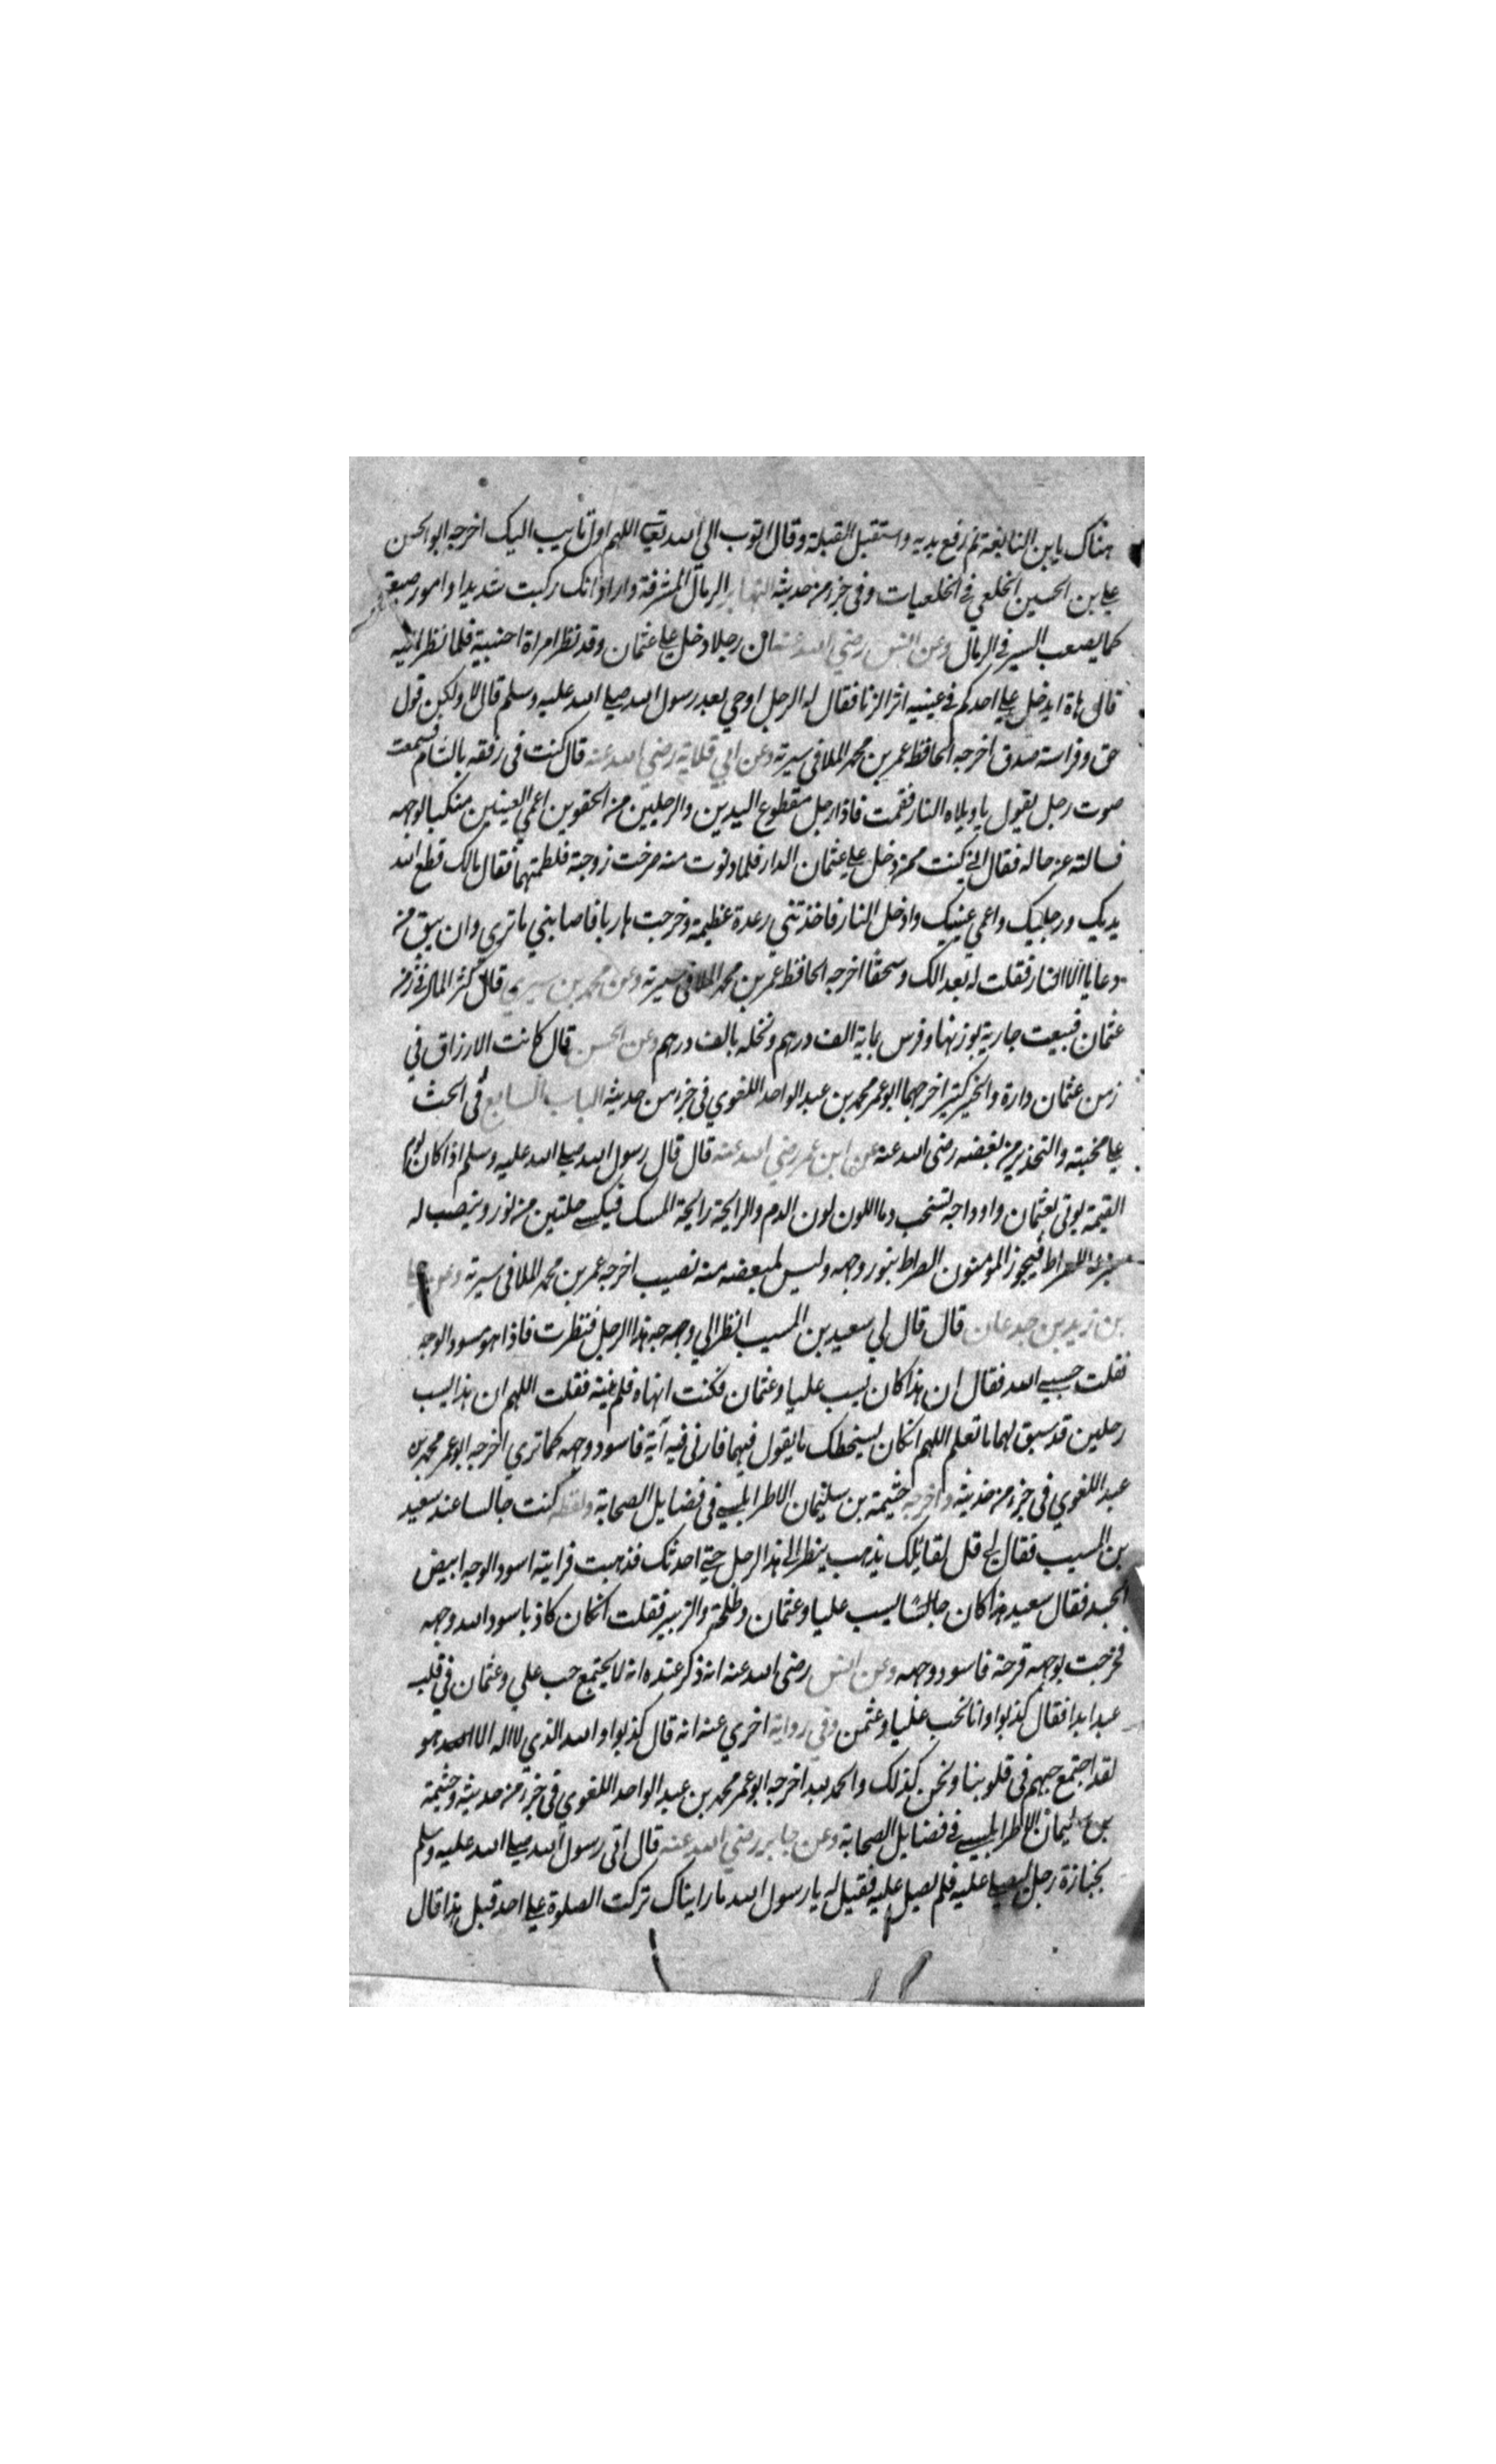 هناك يا بن النابغة ثم رفع يديه واستقبل القبلة وقال اتوب الي الله تعالى اللهم اول تايب اليك اخرجه ابو الحسن
علي بن الحسين الخلعي في الخلعيات وفي جزء من حديثه النهابر الرمال المشرفة واراد انك ركبت شديدا وامور صعبة
كما يصعب السير في الرمال وعن انس رضي الله عنه ان رجلا دخل علي عثمان وقد نظر امراة اجنبية فلما نظر اليه
قال هاه ايدخل علي احدكم في عينيه اثر الزنا فقال له الرجل اوحي بعد رسول الله صلي الله عليه وسلم قال لا ولكن قول
حق وفراسة صدق اخرجه الحافظ عمر بن محمد الملا في سيرته وعن ابي قلابة رضي الله عنه قال كنت في رفقه بالشام فسمعت
صوت رجل يقول يا ويلاه النار فقمت فاذا رجل مقطوع اليدين والرجلين من الحقوين اعمي العينين منكبا لوجهه
فسالته عن حاله فقال اني كنت ممن دخل علي عثمان الدار فلما دنوت منه صرخت زوجته فلطمتها فقال مالك قطع الله
يديك ورجليك واعمي عينيك وادخل النار فاخذتني رعدة عظيمة وخرجت هاربا فاصابني ما تري وان يبق من
دعايا الا النار فقلت له بعدا لك وسحقا اخرجه الحافظ عمر بن محمد الملا في سيرته وعن محمد بن سيري قال كثر المال في زمن
عثمان فبيعت جارية بوزنها وفرس بماية الف درهم ونخله بالف درهم وعن الحسن قال كانت الارزاق في
زمن عثمان دارة والخير كثير اخرجهما ابو عمر محمد بن عبد الواحد اللغوي في جزء من حديثه الباب السابع في الحث
علي محبته والتحذير من بغضه رضي الله عنه عن ابن عمر رضي الله عنه قال قال رسول الله صلي الله عليه وسلم اذا كان يوم
القيمة يوتي بعثمان واوداجه تشخب دما اللون لون الدم والرايحة رايحة المسك فيكسي حلتين من نور وينصب له
منبر علي الصراط فيجوز المومنون الصراط بنور وجهه وليس لمبغضه منه نصيب اخرجه عمر بن محمد الملا في سيرته وعن علي
بن زيد بن جدعان قال قال لي سعيد بن المسيب انظر الي وجه هذا الرجل فنظرت فاذا هو مسود الوجه
فقلت حسبي الله فقال ان هذا كان يسب عليا وعثمان فكنت انهاه فلم ينته فقلت اللهم ان هذا يسب
رجلين قد سبق لهما ما تعلم اللهم ان كان يسخطك ما يقول فيهما فارني فيه آية فاسود وجهه كما تري اخرجه ابو عمر محمد بن
عبد اللغوي في جزء من حديثه واخرجه خثيمة بن سليمان الاطرابلسي في فضايل الصحابة ولفظه كنت جالسا عند سعيد
بن المسيب فقال لي قل لقايدك يذهب ينظر الي هذا الرجل حتي احدثك فذهبت فرايته اسود الوجه ابيض
الجسد فقال سعيد هذا كان جالسا يسب عليا وعثمان وطلحة والزبير فقلت ان كان كاذبا سود الله وجهه
فخرجت بوجهه قرحة فاسود وجهه وعن انس رضي الله عنه انه ذكر عنده انه لا يجتمع حب علي وعثمان في قلب
عبد ابدا فقال كذبوا وانا نحب عليا وعثمن وفي رواية اخري عنه انه قال كذبوا والله الذي لا اله الا هو
لقد اجتمع حبهم في قلوبنا ونحن كذلك والحمد لله اخرجه ابو عمر محمد بن عبد الواحد اللغوي في جزء من حديثه وخثيمة
بن سليمان الاطرابلسي في فضايل الصحابة وعن جابر رضي الله عنه قال اتي رسول الله صلي الله عليه وسلم
بجنازة رجل ليصلي عليه فلم يصل عليه فقيل له يا رسول الله ما رايناك تركت الصلوة علي احد قبل هذا قال